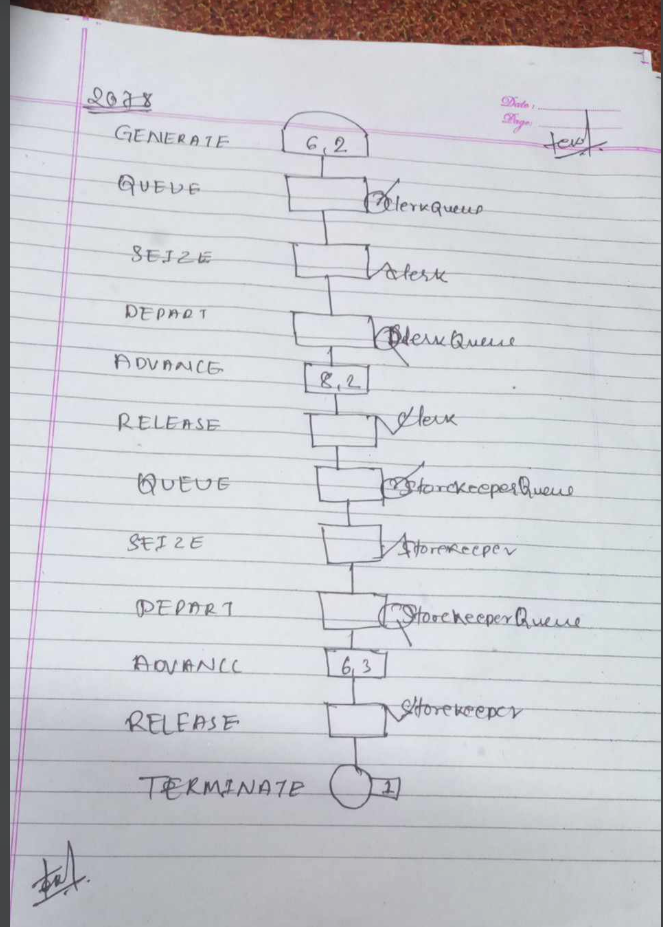 2078
Date:
Page:
GENERATE 6,2
QUEUE ClerkQueue
SEIZE Clerk
DEPART ClerkQueue
ADVANCE 8,2
RELEASE Clerk
QUEUE StorekeeperQueue
SEIZE Storekeeper
DEPART StorekeeperQueue
ADVANCE 6,3
RELEASE Storekeeper
TERMINATE 1